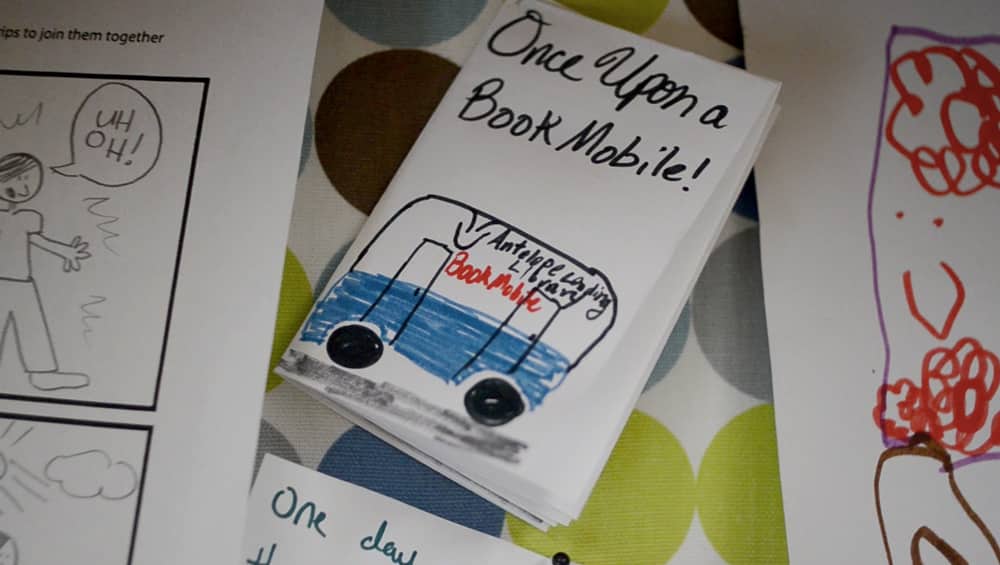 rips to join them together
UH
OH!
Once Upon a
Book Mobile!
Antelope Landing
Library
BookMobile
One day